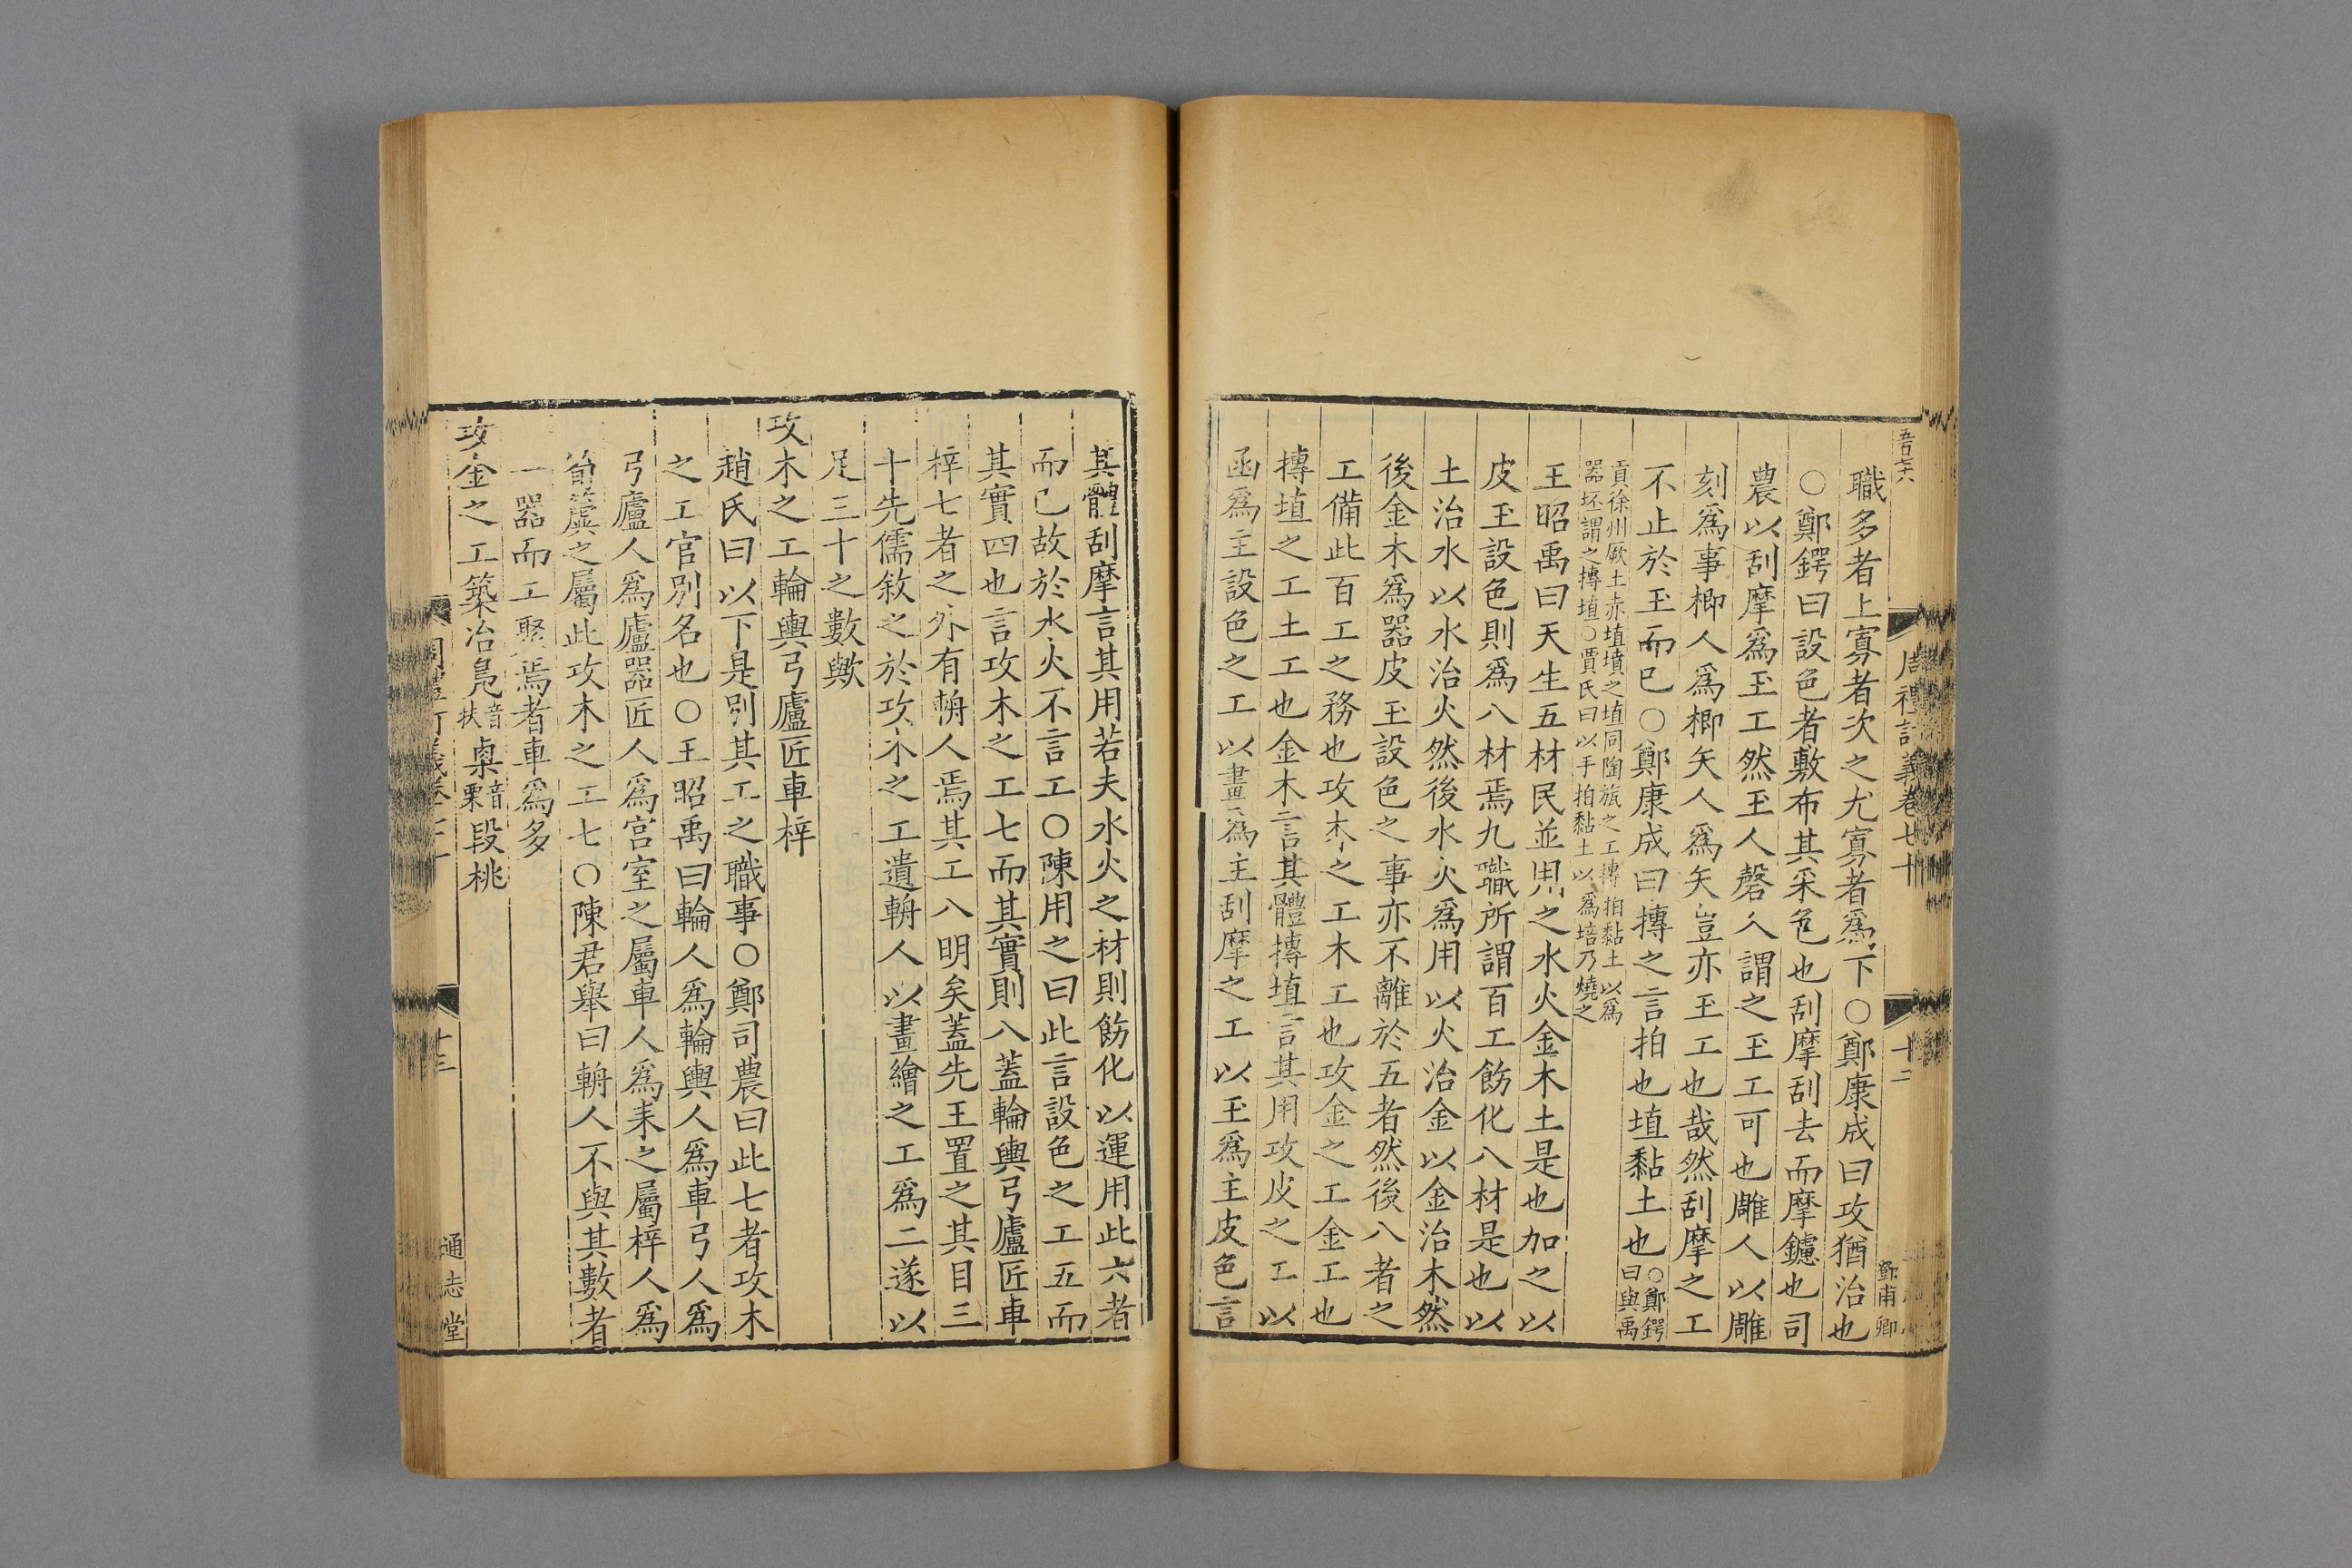 周禮訂義卷七十
十二
鄧甫卿
職多者上寡者次之尤寡者爲下○鄭康成曰攻猶治也
○鄭鍔曰設色者敷布其采色也刮摩刮去而摩鑢也司
農以刮摩爲玉工然玉人磬人謂之玉工可也雕人以雕
刻爲事楖人爲楖矢人爲矢豈亦玉工也哉然刮摩之工
不止於玉而已○鄭康成曰摶之言拍也埴黏土也○鄭鍔曰與禹
貢徐州厥土赤埴墳之埴同陶旊之工摶拍黏土以爲
器坯謂之摶埴○賈氏曰以手拍黏土以爲培乃燒之
王昭禹曰天生五材民並用之水火金木土是也加之以
皮玉設色則爲八材焉九職所謂百工飭化八材是也以
土治水以水治火然後水火爲用以火治金以金治木然
後金木爲器皮玉設色之事亦不離於五者然後八者之
工備此百工之務也攻木之工木工也攻金之工金工也
摶埴之工土工也金木言其體摶埴言其用攻皮之工以
函爲主設色之工以畫爲主刮摩之工以玉爲主皮色言
其體刮摩言其用若夫水火之材則飭化以運用此六者
而已故於水火不言工○陳用之曰此言設色之工五而
其實四也言攻木之工七而其實則八蓋輪輿弓廬匠車
梓七者之外有輈人焉其工八明矣蓋先王置之其目三
十先儒敘之於攻木之工遺輈人以畫繪之工爲二遂以
足三十之數歟
攻木之工輪輿弓廬匠車梓
趙氏曰以下是別其工之職事○鄭司農曰此七者攻木
之工官別名也○王昭禹曰輪人爲輪輿人爲車弓人爲
弓廬人爲廬器匠人爲宮室之屬車人爲耒之屬梓人爲
筍簴之屬此攻木之工七○陳君舉曰輈人不與其數者
一器而工聚焉者車爲多
攻金之工築冶鳧音扶㮚音栗段桃
十三
通志堂